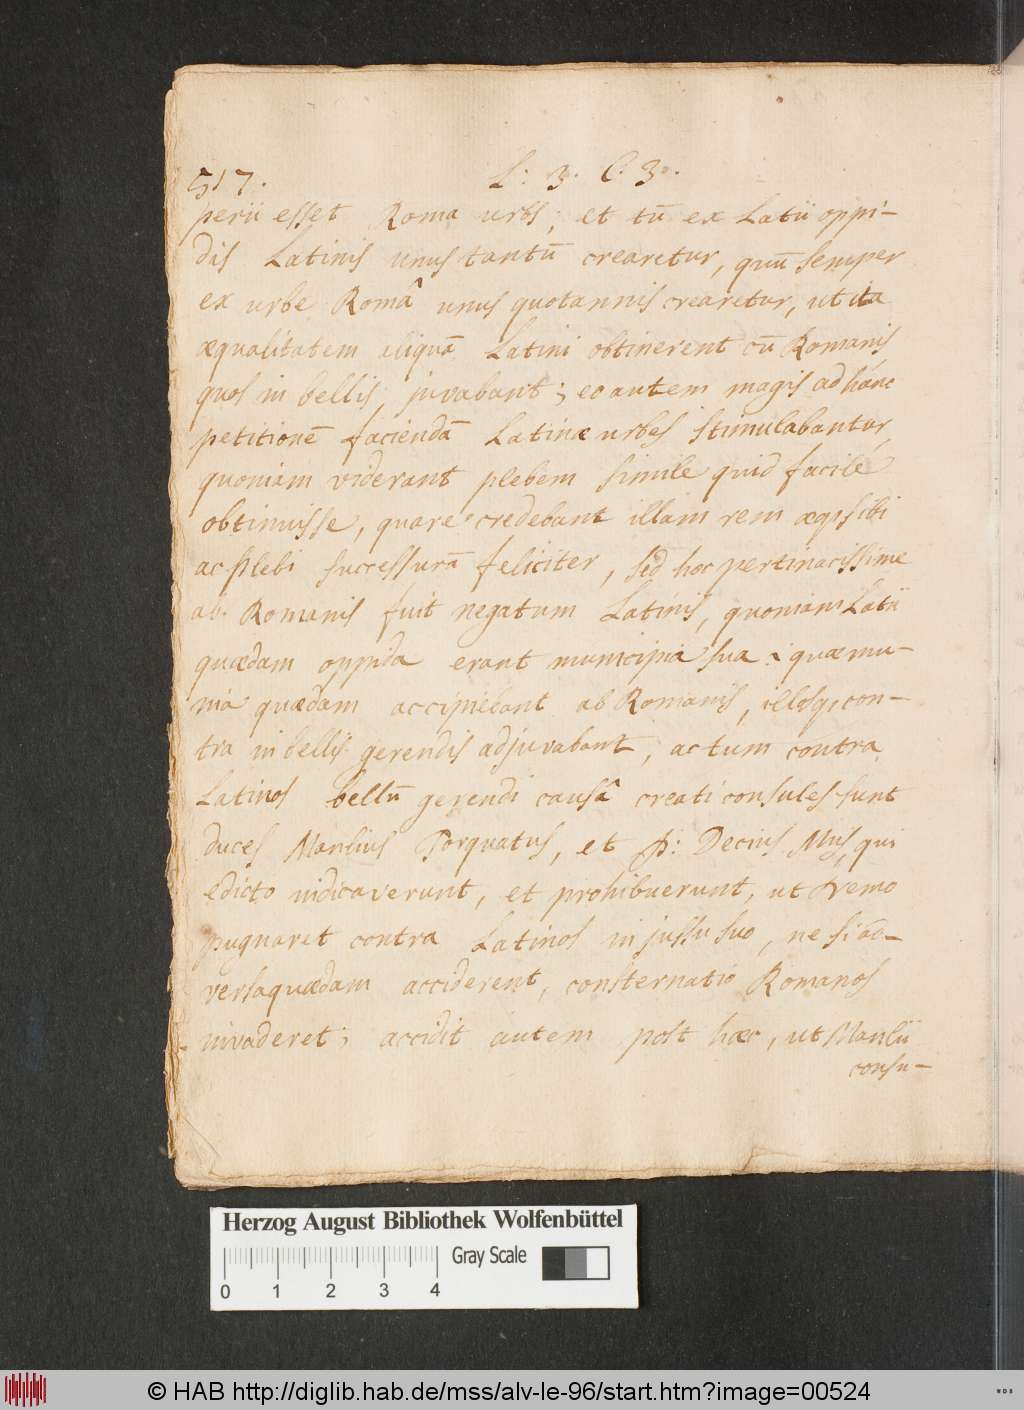 517. L: 3. C. 3.
perii esset Roma urbs, et tū ex Latii oppi-
dis Latinis unus tantū crearetur, quū semper
ex urbe Româ unus quotannis crearetur, ut ita
æqualitatem aliquā Latini obtinerent cū Romanis,
quos in bellis juvabant; eo autem magis ad hanc
petitionē faciendā Latinæ urbes stimulabantur,
quoniam viderant plebem simile quid facilè
obtinuisse, quare credebant illam rem æq; sibi
ac plebi successurā feliciter, sed hoc pertinacissime
ab Romanis fuit negatum Latinis, quoniam Latii
quædam oppida erant municipia sua i quæ mu-
nia quædam accipiebant ab Romanis, illosq; con-
tra in bellis gerendis adjuvabant, ac tum contra
Latinos bellū gerendi causâ creati consules sunt
duces Manlius Torquatus, et P: Decius Mus, qui
edicto indicaverunt, et prohibuerunt, ut nemo
pugnaret contra Latinos injussu suo, ne si ad-
versa quædam acciderent, consternatio Romanos
invaderet; accidit autem post hæc, ut Manlii
consu-
Herzog August Bibliothek Wolfenbüttel
Gray Scale
0 1 2 3 4
© HAB http://diglib.hab.de/mss/alv-le-96/start.htm?image=00524